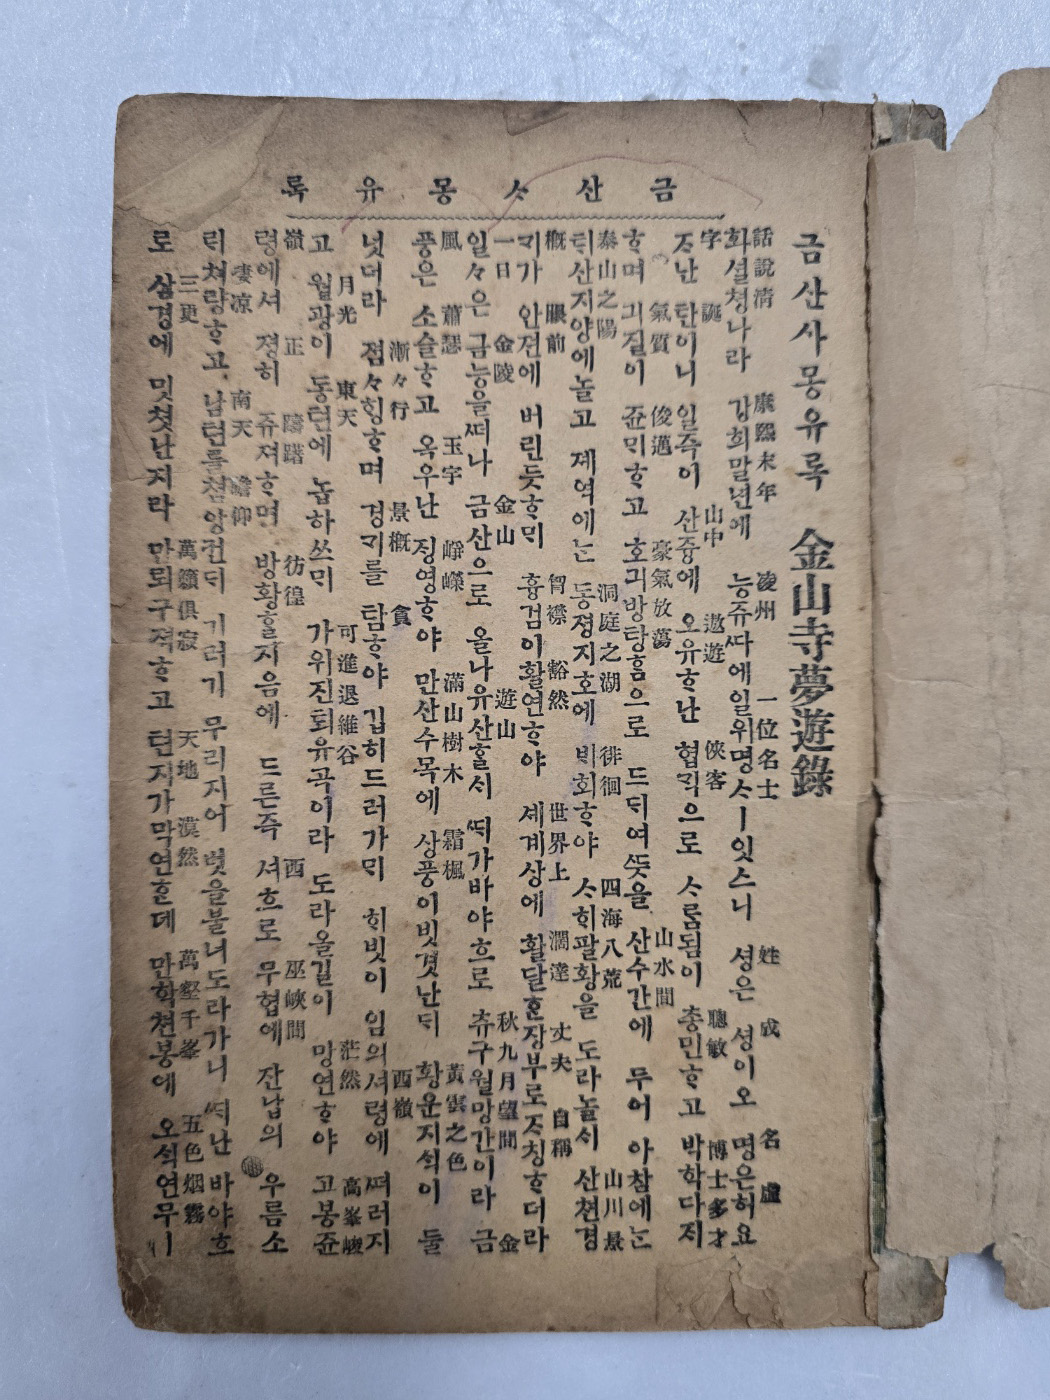 금산ᄉᆞ몽유록
금산사몽유록 金山寺夢遊錄
話說淸 康熙末年 凌州 一位名士 姓 成 名 虛
화셜쳥나라 강희말년에 능쥬ᄯᅡ에일위명ᄉᆞㅣ잇스니 셩은 셩이오 명은허요
字 誕 山中 遨遊 俠客 聰敏 博士多才
ᄌᆞ난 탄이니 일즉이 산즁에 오유ᄒᆞ난 협ᄀᆡᆨ으로 ᄉᆞᄅᆞᆷ됨이 총민ᄒᆞ고 박학다ᄌᆡ
氣質 俊邁 豪氣放蕩 山水間
ᄒᆞ며 긔질이 쥰ᄆᆡᄒᆞ고 호긔방탕ᄒᆞᆷ으로 드ᄃᆡ여 ᄯᅳᆺ을 산수간에 두어 아참에ᄂᆞᆫ
泰山之陽 洞庭之湖 徘徊 四海八荒 山川景
ᄐᆡ산지양에놀고 졔역에ᄂᆞᆫ 동졍지호에 ᄇᆡ회ᄒᆞ야 ᄉᆞᄒᆡ팔황을 도라놀ᄉᆡ 산쳔경
槪 眼前 胸襟 豁然 世界上 濶達 丈夫 自稱
ᄀᆡ가 안젼에 버린듯ᄒᆞᄆᆡ 흉검이활연ᄒᆞ야 셰계상에 활달ᄒᆞᆫ장부로ᄌᆞ칭ᄒᆞ더라
一日 金陵 金山 遊山 秋九月望間 金
일々은 금능을ᄯᅥ나 금산으로 올나유산ᄒᆞᆯᄉᆡ ᄯᅢ가바야흐로 츄구월망간이라 금
風 蕭瑟 玉宇 崢嶸 滿山樹木 霜楓 黃雲之色
풍은 소슬ᄒᆞ고 옥우난 징영ᄒᆞ야 만산수목에 상풍이빗겻난ᄃᆡ 황운지ᄉᆡᆨ이 둘
漸々行 景槪 貪 西嶺
넛더라 졈々ᄒᆡᆼᄒᆞ며 경ᄀᆡ를 탐ᄒᆞ야 깁히드러가ᄆᆡ ᄒᆡ빗이 임의셔령에 ᄯᅥ러지
月光 東天 可進退維谷 茫然 高峯峻
고 월광이 동텬에 놉하쓰ᄆᆡ 가위진퇴유곡이라 도라올길이 망연ᄒᆞ야 고봉쥰
嶺 正 躊躇 彷徨 西 巫峽間
령에셔 졍히 쥬져ᄒᆞ면 방황ᄒᆞᆯ지음에 드른즉 셔흐로 무협에 잔납의 우름소
凄凉 南天 瞻仰
ᄅᆡ쳐량ᄒᆞ고 남텬를쳠앙건ᄃᆡ 기러기 무리지어 을불너도라가니 ᄯᅢ난 바야흐
三更 萬籟俱寂 天地 漠然 萬壑千峯 五色烟霧
로 삼경에 밋쳣난지라 만뢰구젹ᄒᆞ고 텬지가막연ᄒᆞᆫ데 만학쳔봉에 오ᄉᆡᆨ연무ㅣ